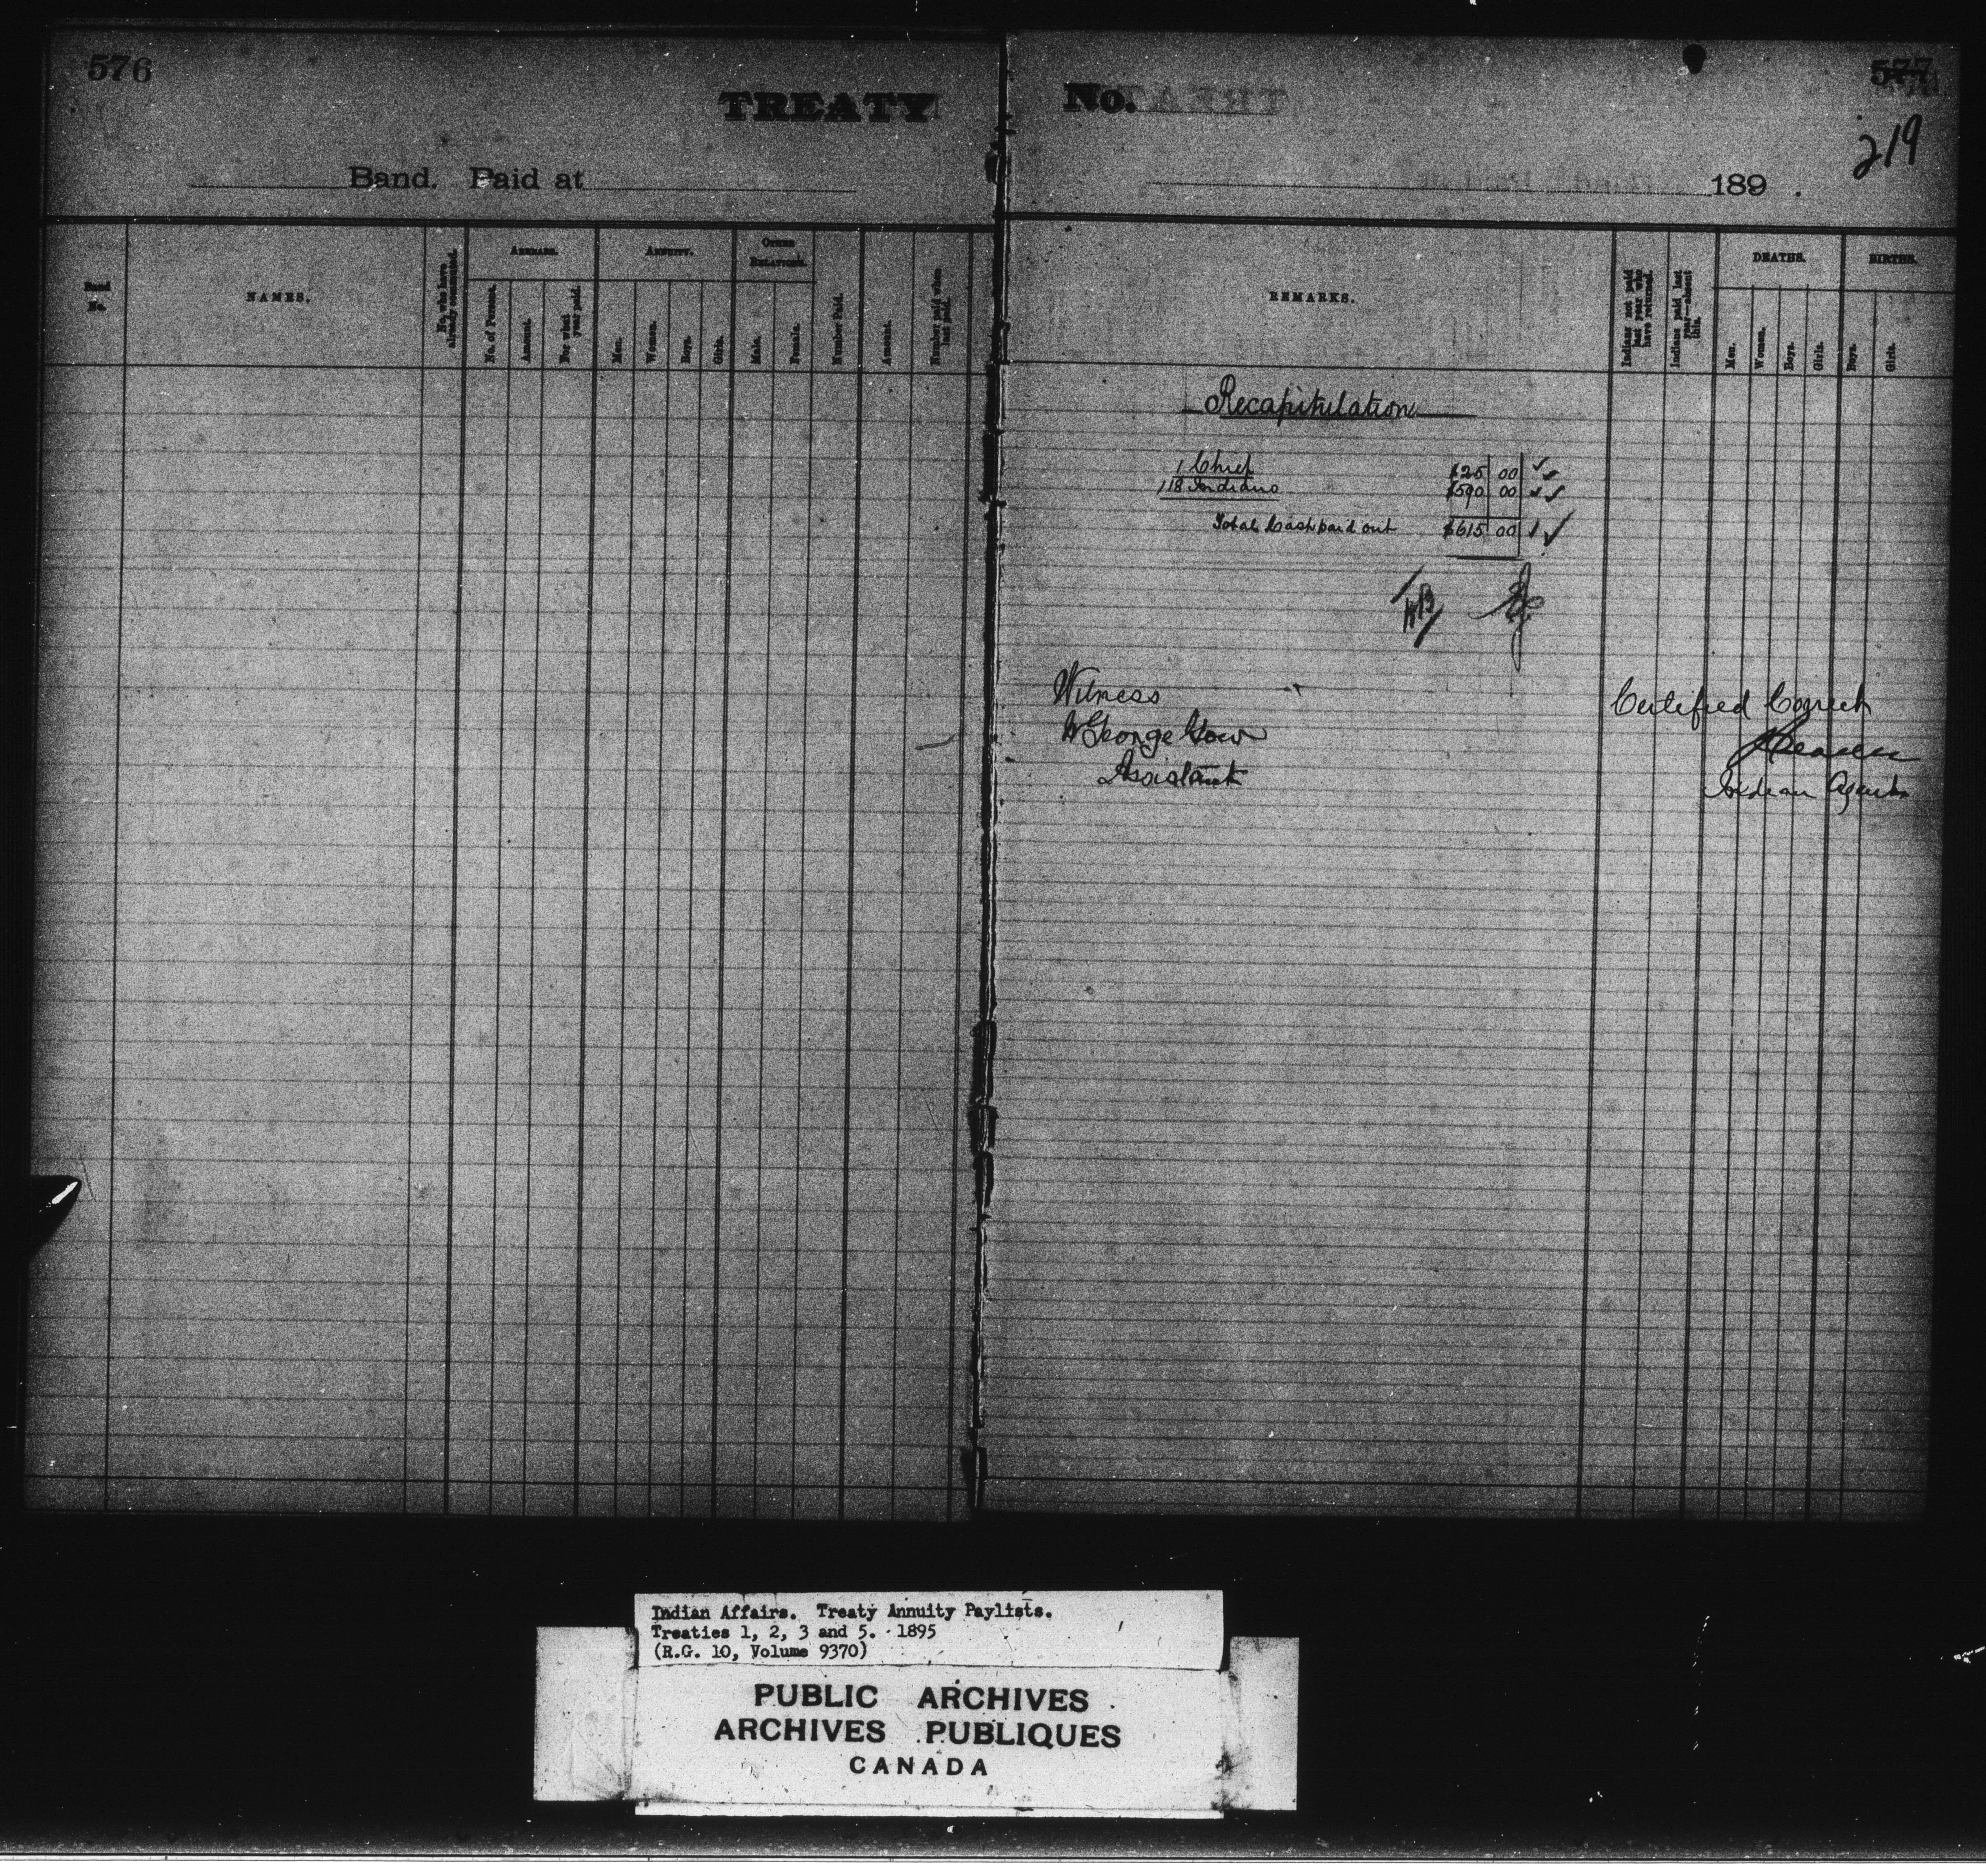 576
TREATY
Band. Paid at
Band No.
NAMES.
No. who have already commuted.
ARREARS.
No. of Persons.
Amount.
For what year paid.
ANNUITY.
Men.
Women.
Boys.
Girls.
OTHER RELATIONS.
Male.
Female.
Number Paid.
Amount.
Number paid when last paid.
No.
577
219
189 .
REMARKS.
Indians not paid last year who have returned.
Indians paid last year—absent this.
DEATHS.
Men.
Women.
Boys.
Girls.
BIRTHS.
Boys.
Girls.
Recapitulation
1 Chief $25 00
118 Indians $590 00
Total Cash paid out $615 00
Witness
George Gow
Assistant
Certified Correct
Indian Agent
Indian Affairs. Treaty Annuity Paylists.
Treaties 1, 2, 3 and 5. 1895
(R.G. 10, Volume 9370)
PUBLIC ARCHIVES
ARCHIVES PUBLIQUES
CANADA